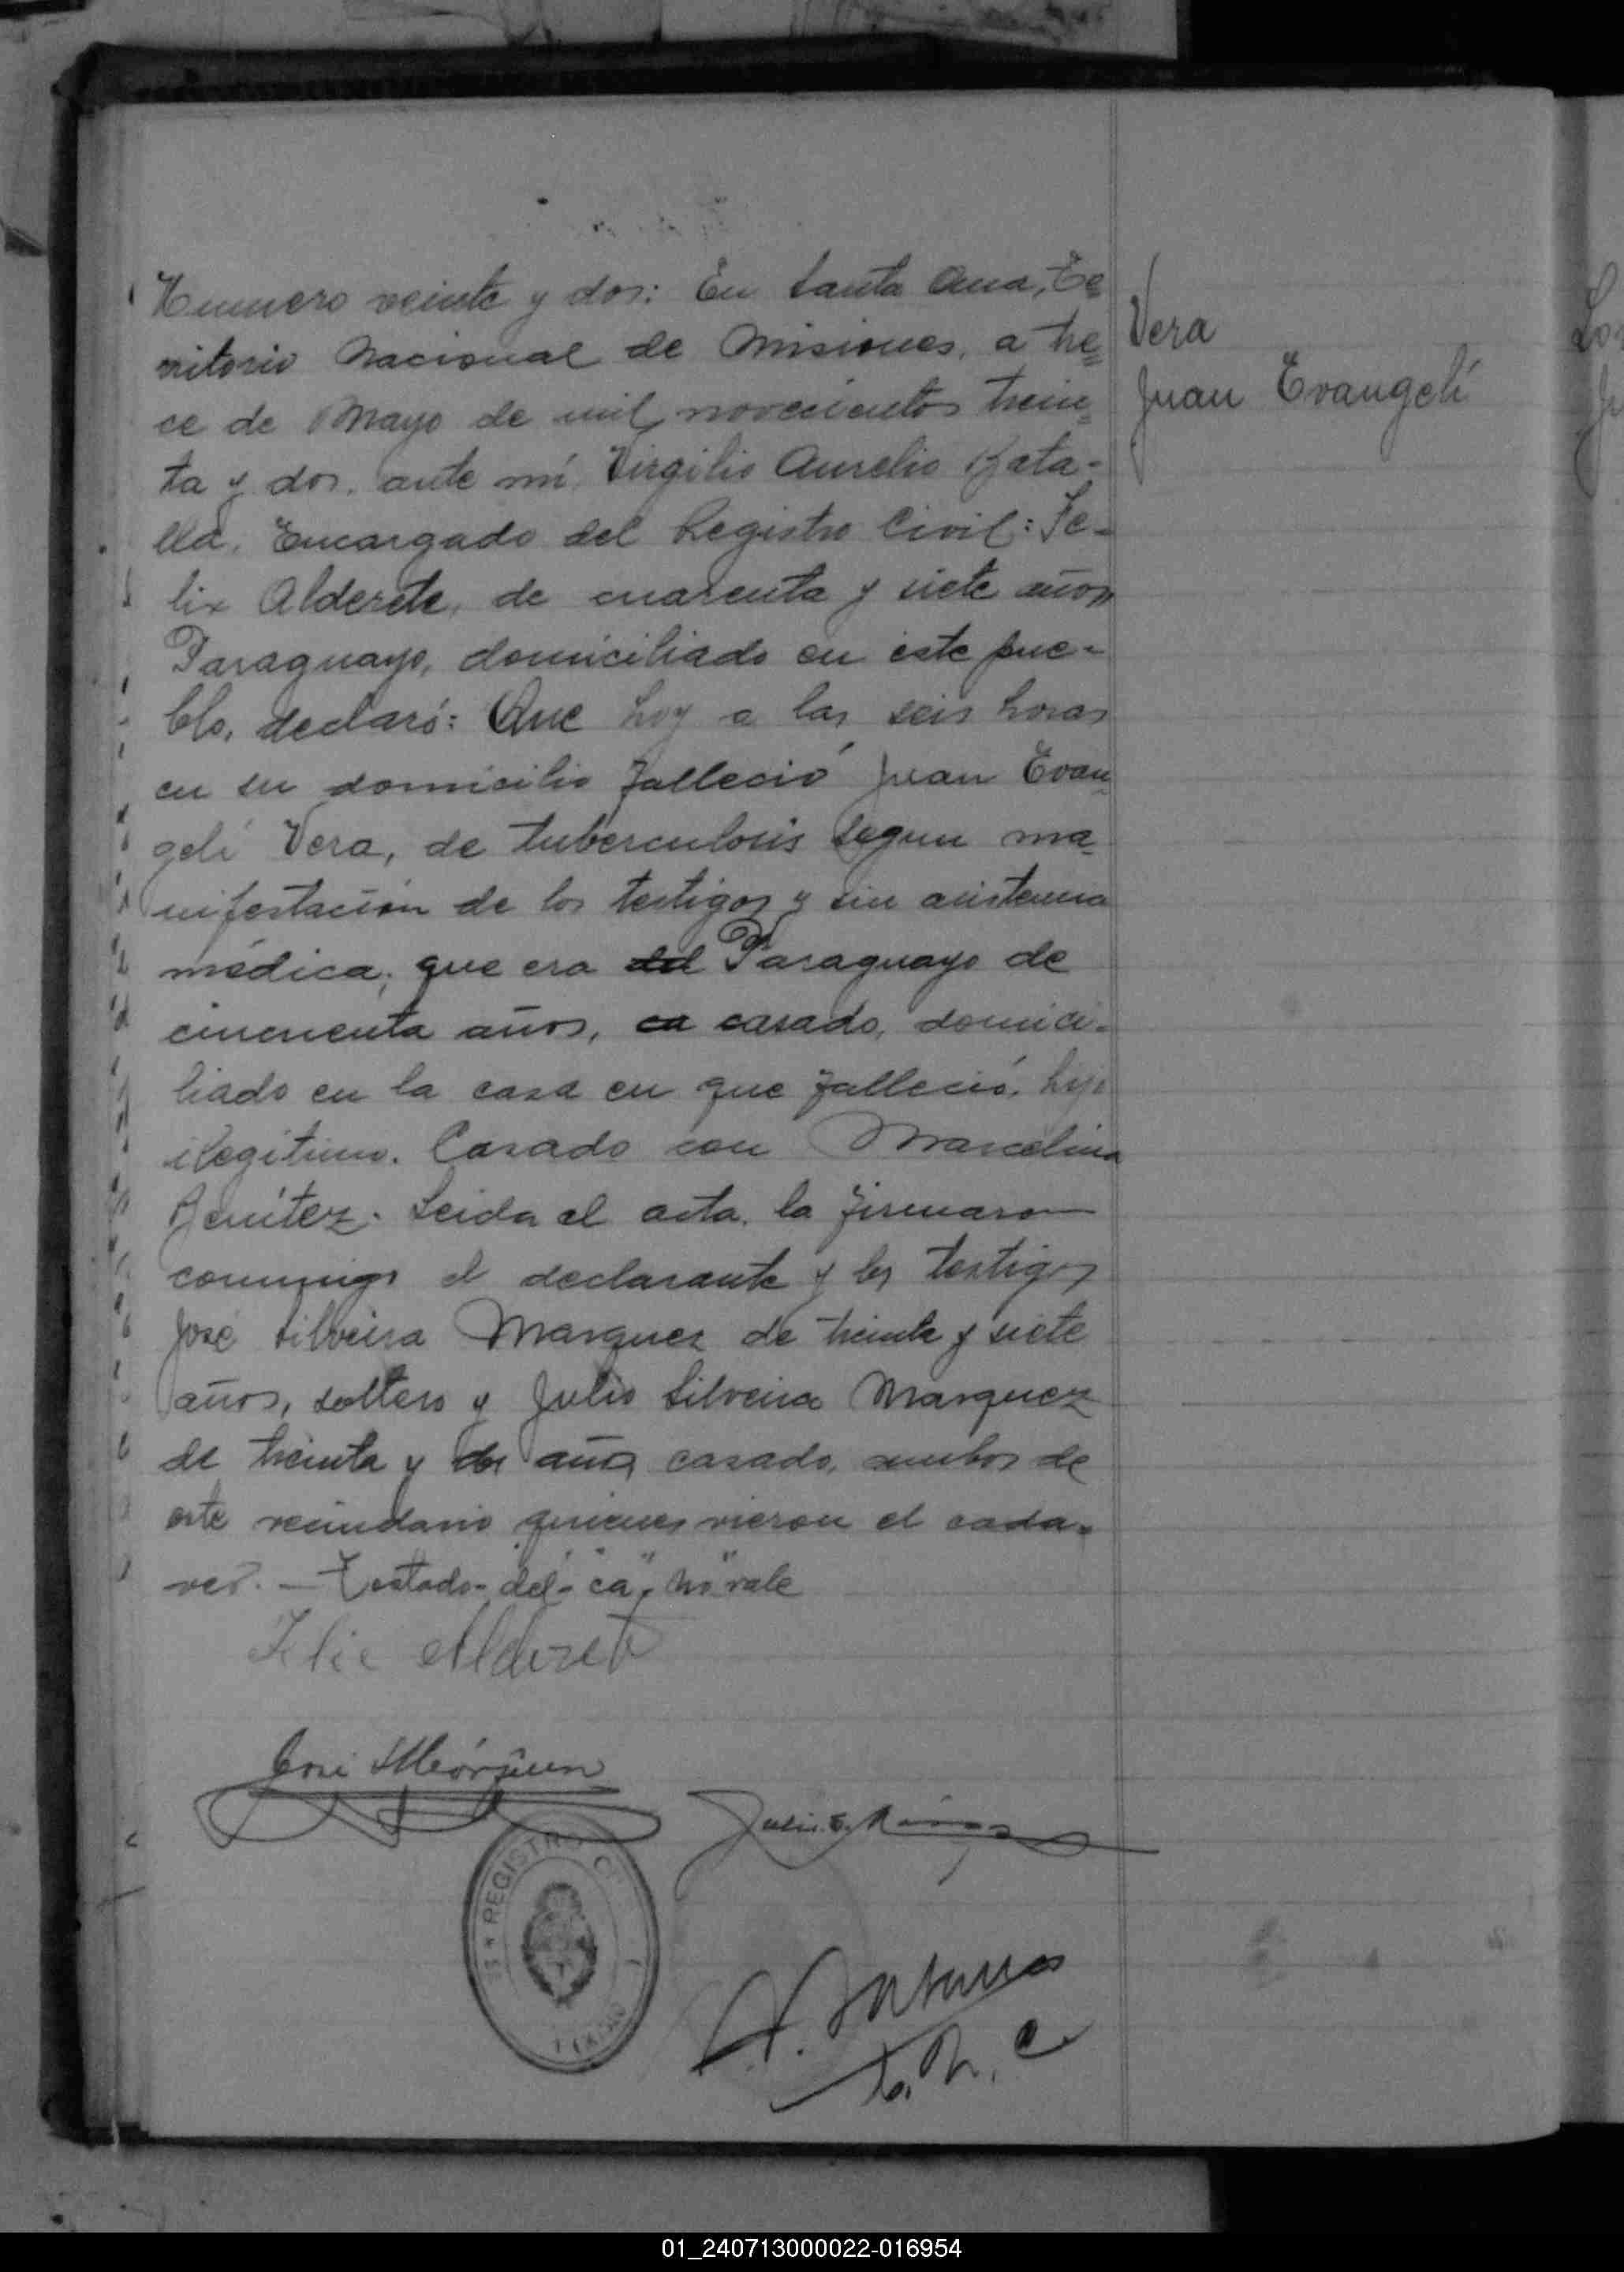 Numero veinte y dos: En Santa Ana, Te-
rritorio Nacional de Misiones, a tre-
ce de Mayo de mil novecientos trein-
ta y dos, ante mí, Virgilio Aurelio Bata-
lla, Encargado del Registro Civil: Fe-
lix Alderete, de cuarenta y siete años
Paraguayo, domiciliado en este pue-
blo, declaró: Que hoy a las seis horas
en su domicilio falleció Juan Evan-
gelí Vera, de tuberculosis segun ma-
nifestación de los testigos y sin asistencia
médica; que era del Paraguayo de
cincuenta años, ca casado, domici-
liado en la casa en que falleció, hijo
ilegitimo. Casado con Marcelina
Benítez. Leida el acta, la firmaron
conmigo el declarante y los testigos
José Silveira Marquez de treinta y siete
años, soltero y Julio Silveira Marquez
de treinta y dos años casado, ambos de
este vecindario quienes vieron el cada-
ver. — Testado-"del"-"ca", no vale
Vera
Juan Evangelí
Felix Alderete
José
Julio S.
REGISTRO
01_240713000022-016954